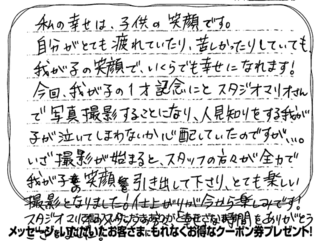 私の幸せは、子供の笑顔です。
自分がとても疲れていたり、苦しかったりしていても、
我が子の笑顔で、いくらでも幸せになれます!
今回、我が子の1才記念にと スタジオマリオさん
で写真撮影することになり、人見知りをする我が
子が泣いてしまわないか心配していたのですが…。
いざ撮影が始まると、スタッフの方々が全力で
我が子の笑顔を引き出して下さり、とても楽しい
撮影となりました!仕上がりが今から楽しみです!
スタジオマリオのスタッフ 幸せな時間をありがとう
メッセージをいただいたお客さまにもれなくお得なクーポン券プレゼント!